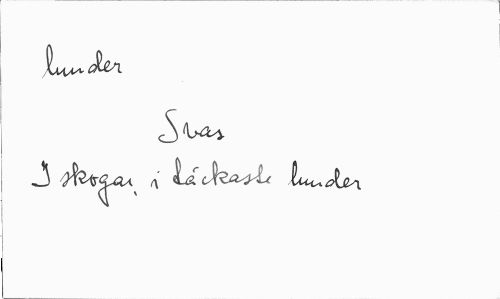 lunder
Svas
I skogar, i täckaste lunder